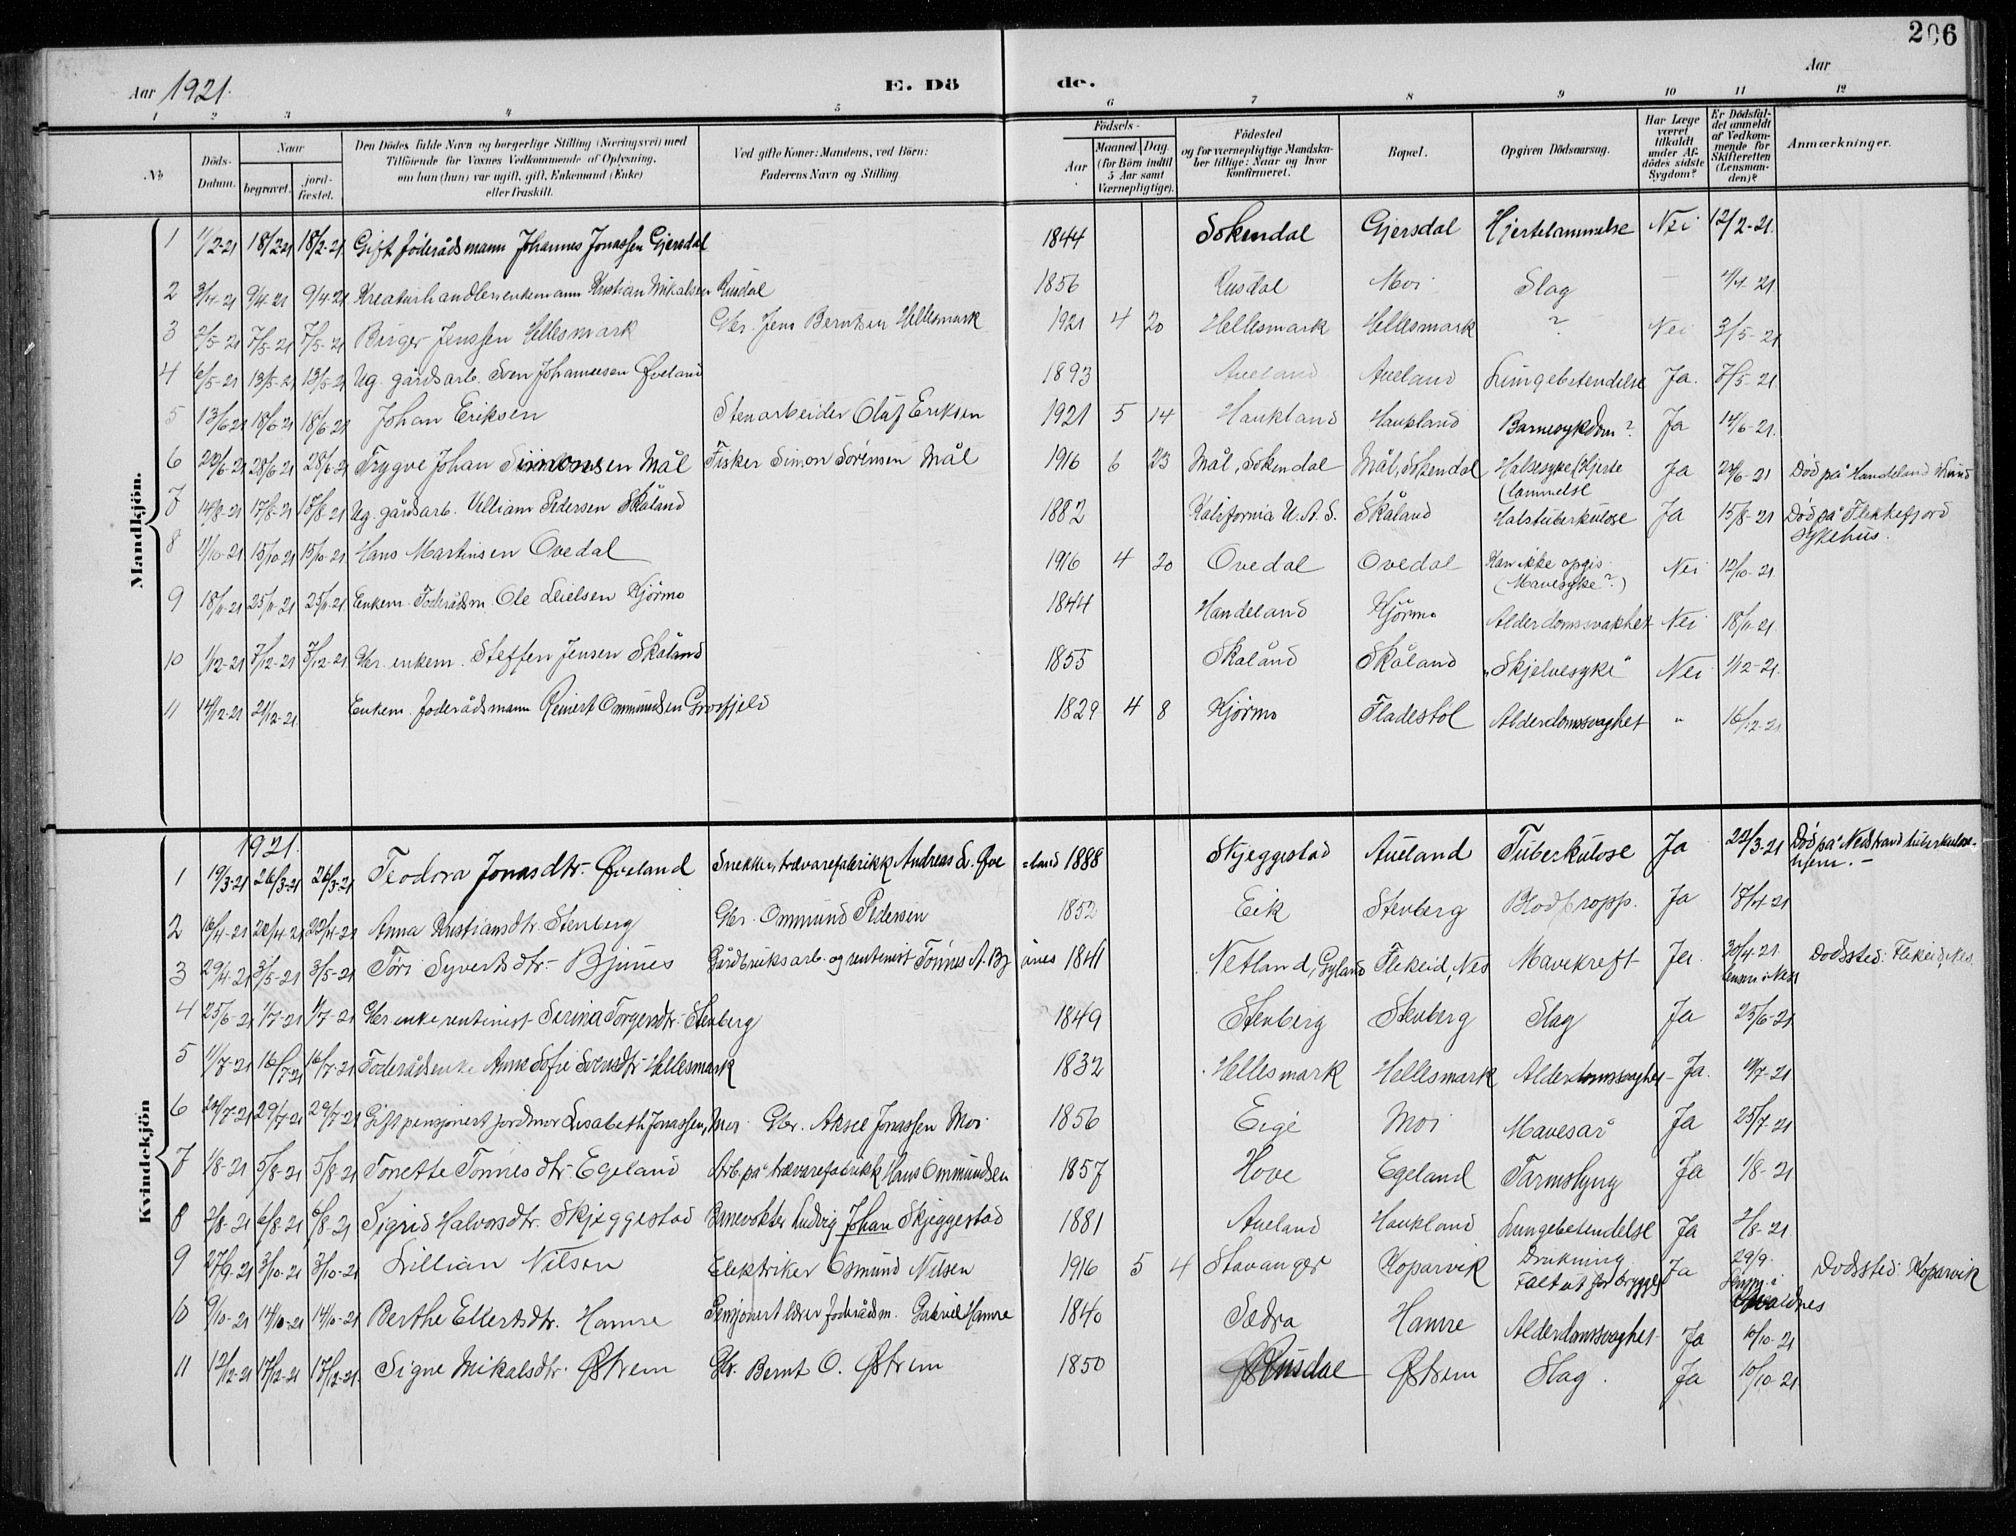 206
Aar 1921. E. Dö de. Aar
1 2 3 4 5 6 7 8 9 10 11 12
No. Döds-Datum. Naar begravet. jord-fæstet. Den Dödes fulde Navn og borgerlige Stilling (Næringsvei) med Tilföiende for Voxnes Vedkommende af Oplysning, om han (hun) var ugift, gift, Enkemand (Enke) eller fraskilt. Ved gifte Koner: Mandens, ved Börn: Faderens Navn og Stilling. Födsels- Aar Maaned Dag (for Börn indtil 5 Aar samt Værnepligtige). Födested og for værnepligtige Mandskaber tillige: Naar og hvor konfirmeret. Bopæl. Opgiven Dödsaarsag. Har Læge været tilkaldt under Afdödes sidste Sygdom? Er Dödsfaldet anmeldt af Vedkommende for Skifteretten (Lensmanden)? Anmærkninger.
Mandkjön.
1 11/2-21 18/2-21 18/2-21 Gift föderådsmann Johannes Jonassen Gjersdal 1844 Sokendal Gjersdal Hjertelammelse Nei 12/2-21.
2 3/4-21 9/4-21 9/4-21 Kreaturhandler enkemann Kristian Mikalsen Rusdal 1856 Rusdal Moi Slag – 4/4-21
3 2/5-21 7/5-21 7/5-21 Birger Jenssen Hellesmark Gbr. Jens Berntsen Hellesmark 1921 4 20 Hellesmark Hellesmark ? Nei 3/5-21
4 6/5-21 13/5-21 13/5-21 Ug. gårdsarb. Sven Johannesen Øveland 1893 Aueland Aueland Lungebetendelse Ja. 7/5-21.
5 13/6-21 18/6-21 18/6-21 Johan Eriksen Stenarbeider Olaf Eriksen 1921 5 14 Haukland Haukland Barnesykdom? Ja 14/6-21.
6 22/6-21 28/6-21 28/6-21 Trygve Johan Simonsen Mål Fisker Simon Sörensen Mål 1916 6 23 Mål, Sokendal Mål, Sokendal Halssyke (Hjertelammelse Ja 24/6-21 Död på Handeland i Lund
7 14/8-21 17/8-21 17/8-21 Ug. gårdsarb. Villiam Pedersen Skåland 1882 Kalifornia U.A.S. Skåland Halstuberkulose Ja 15/8-21 Död på Flekkefjord Sykehus.
8 11/10-21 15/10-21 15/10-21 Hans Martinsen Ovedal 1916 4 20 Ovedal Ovedal Kan ikke opgis (Mavesyke?) Nei 12/10-21
9 18/11-21 25/11-21 25/11-21 Enkem. Föderådsm. Ole Nielsen Hjörmo 1844 Handeland Hjörmo Alderdomssvakhet Nei 18/11-21.
10 1/12-21 7/12-21 7/12-21 Gbr. enkem. Steffen Jensen Skåland 1855 Skaland Skåland „Skjelvesyke“ Nei 1/12-21.
11 14/12-21 21/12-21 Enkem. föderådsmann Reinert Ommundsen Grosfjeld 1829 4 8 Hjörmo Fladestöl Alderdomssvaghet " 16/12-21
Kvindekjön
1921.
1 19/3-21 26/3-21 26/3-21 Teodora Jonasdtr. Øveland Snekker, trævarefabrikk Andreas L. Øve =land 1888 Skjeggestad Aueland Tuberkulose Ja 22/3-21 Död på Nedstrand tuberkulosehjem.–
2 16/4-21 22/4-21 22/4-21 Anna Kristiansdtr. Stenberg Gbr. Ommund Pedersen 1852 Eik Stenberg Blodpropp. Ja 18/4-21
3 29/4-21 3/5-21 3/5-21 Tori Syvertsdtr. Bjunes Gårdbruksarb. og rentenist Tönnes A. Bj unes 1841 Netland, Gyland Flekeid, Nes Mavekreft Ja. 30/4-21 Dödssted: Flekeid, Nes.
4 25/6-21 1/7-21 1/7-21 Gbr. enke rentenist Serina Torgersdtr. Stenberg 1849 Stenberg Stenberg Slag Ja 25/6-21
5 11/7-21 16/7-21 16/7-21 Föderådsenke Anne Sofie Svensdtr. Hellesmark 1832 Hellesmark Hellesmark Alderdomssvaghet Ja. 12/7-21
6 24/7-21 29/7-21 29/7-21 Gift pensjonert jordmor Lisabeth Jonassen, Moi Gbr. Aksel Jonassen Moi 1856 Eige Moi Mavesår Ja 25/7-21
7 1/8-21 5/8-21 5/8-21 Tonette Tönnesdtr. Egeland Arb. på trævarefabrikk Hans Ommundsen 1857 Hove Egeland Tarmslyng Ja 1/8-21
8 2/8-21 6/8-21 6/8-21 Sigrid Halvorsdtr. Skjeggestad Banevokter Ludvig Johan Skjeggestad 1881 Aueland Haukland Lungebetendelse Ja 2/8-21.
9 27/9-21 3/10-21 3/10-21 Lillian Nilsen Elektriker Osmund Nilsen 1916 5 4 Stavanger Kopervik Drukning Falt ut for brygge Ja 29/9 Dödssted: Kopervik
10 9/10-21 14/10-21 14/10-21 Berthe Ellertsdtr. Hamre Pensjonert lærer föderådsm. Gabriel Hamre 1840 Sædra Hamre Alderdomssvaghet Ja 10/10-21
11 12/12-21 17/12-21 17/12-21. Signe Mikalsdtr. Østrem Gbr. Bernt O. Østrem 1850 Rusdal Østrem Slag. Ja 10/10-21.